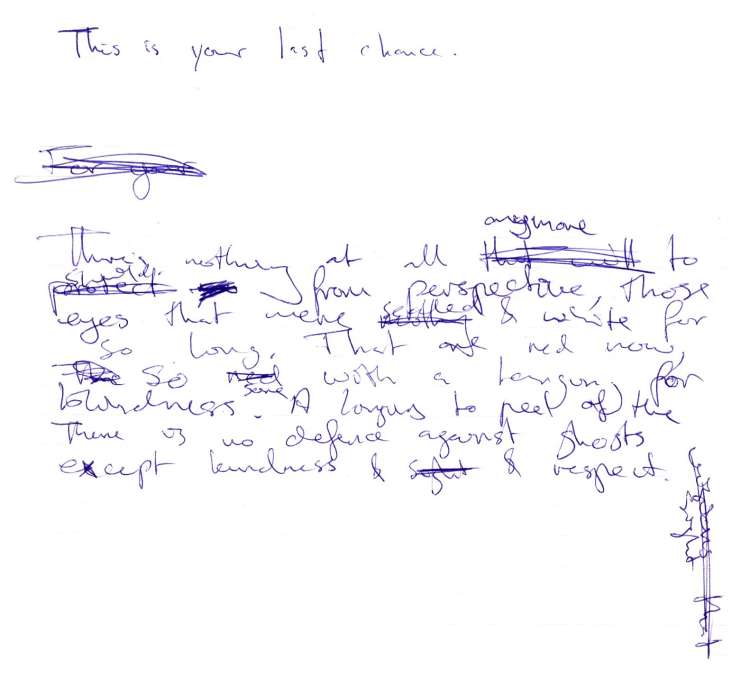 This is your last chance.
For your
anymore
There's nothing at all that will to
shield
protect from perspective, those
eyes that were settled & white for
so long. That are red now,
So red with a for
some
blindness. A longing to peel off the
There is no defence against ghosts
except kindness & sight & respect.